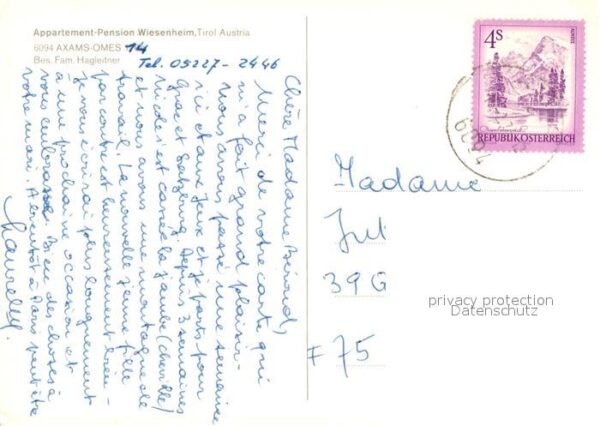 Appartement-Pension Wiesenheim, Tirol Austria
6094 AXAMS-OMES 14
Bes. Fam. Hagleitner
Tel. 05227-2446
Chère Madame
Merci de votre carte qui
m'a fait grand plaisir.
Nous avons passé une semaine
ici et aux Jeux et je pars pour
Graz et Salzburg. Depuis 3 semaines
s'est cassée la jambe (cheville)
et nous avons une montagne de
travail. La nouvelle jeune fille
par contre est heureusement bien
je vous écrirai plus longuement
à une prochaine occasion et
vous embrasse. Bien des choses à
votre mari. A bientôt à Paris peut être
4S
REPUBLIK ÖSTERREICH
6094
Madame
Jul
39 G
F 75
privacy protection
Datenschutz